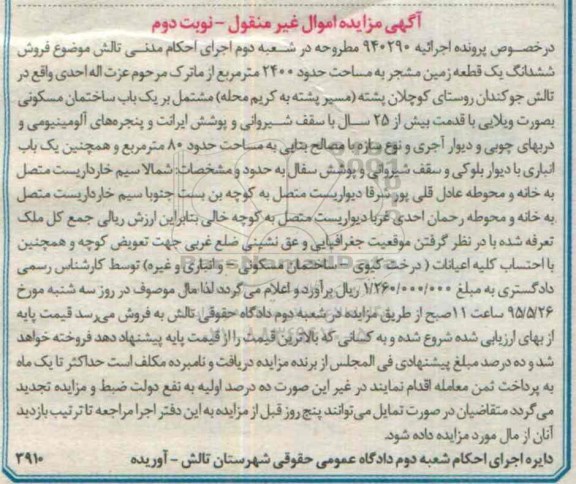 آگهی مزایده اموال غیر منقول - نوبت دوم
درخصوص پرونده اجرائیه ۹۴۰۲۹۰ مطروحه در شعبه دوم اجرای احکام مدنی تالش موضوع فروش
ششدانگ یک قطعه زمین مشجر به مساحت حدود ۲۴۰۰ مترمربع از ماترک مرحوم عزت اله احدی واقع در
تالش جوکندان روستای کوچلان پشته (مسیر پشته به کریم محله) مشتمل بر یک باب ساختمان مسکونی
بصورت ویلایی با قدمت بیش از ۲۵ سال با سقف شیروانی و پوشش ایرانت و پنجره‌های آلومینیومی و
دربهای چوبی و دیوار آجری و نوع سازه با مصالح بنایی به مساحت حدود ۸۰ مترمربع و همچنین یک باب
انباری با دیوار بلوکی و سقف شیروانی و پوشش سفال به حدود و مشخصات: شمالا سیم خارداریست متصل
به خانه و محوطه عادل قلی پور شرقا دیواریست متصل به کوچه بن بست جنوبا سیم خارداریست متصل
به خانه و محوطه رحمان احدی غربا دیواریست متصل به کوچه خالی بنابراین ارزش ریالی جمع کل ملک
تعرفه شده با در نظر گرفتن موقعیت جغرافیایی و عق نشینی ضلع غربی جهت تعویض کوچه و همچنین
با احتساب کلیه اعیانات (درخت کیوی - ساختمان مسکونی - و انباری و غیره) توسط کارشناس رسمی
دادگستری به مبلغ ۱/۲۶۰/۰۰۰/۰۰۰ ریال برآورد و اعلام می گردد لذا مال موصوف در روز سه شنبه مورخ
۹۵/۵/۲۶ ساعت ۱۱ صبح از طریق مزایده در شعبه دوم دادگاه حقوقی تالش به فروش می‌رسد قیمت پایه
از بهای ارزیابی شده شروع شده و به کسانی که بالاترین قیمت را از قیمت پایه پیشنهاد دهد فروخته خواهد
شد و ده درصد مبلغ پیشنهادی فی المجلس از برنده مزایده دریافت و نامبرده مکلف است حداکثر تا یک ماه
به پرداخت ثمن معامله اقدام نمایند در غیر این صورت ده درصد اولیه به نفع دولت ضبط و مزایده تجدید
می گردد متقاضیان در صورت تمایل می‌توانند پنج روز قبل از مزایده به این دفتر اجرا مراجعه تا ترتیب بازدید
آنان از مال مورد مزایده داده شود.
دایره اجرای احکام شعبه دوم دادگاه عمومی حقوقی شهرستان تالش - آوریده ۳۹۱۰